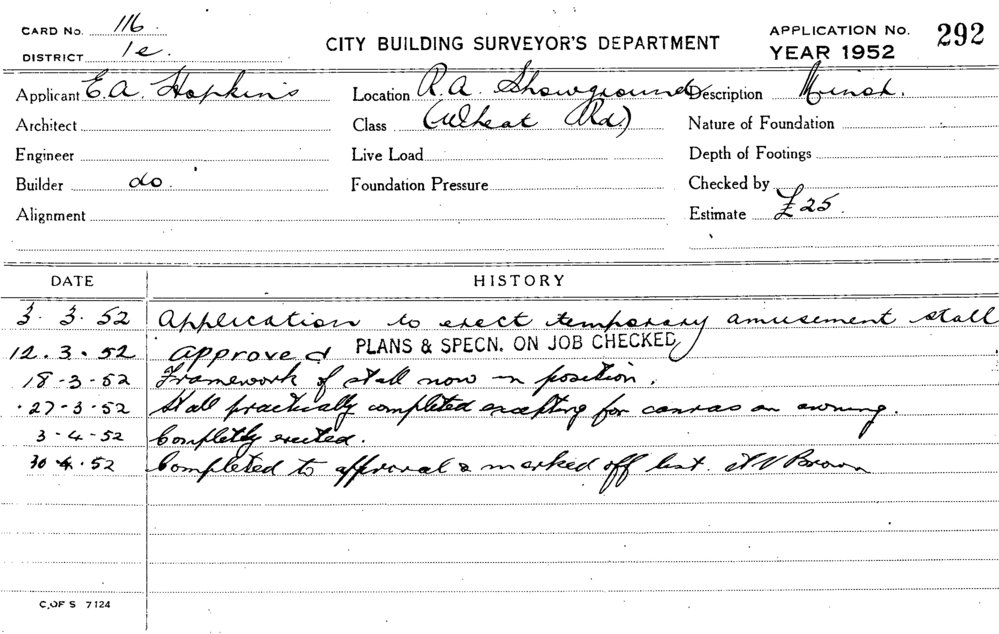 CARD No. 116
DISTRICT 1e.
CITY BUILDING SURVEYOR'S DEPARTMENT
APPLICATION No. 292
YEAR 1952
Applicant E. A. Hopkins Location R. A. Showground Description Minor.
Architect Class (Wheat Rd.) Nature of Foundation
Engineer Live Load Depth of Footings
Builder do. Foundation Pressure Checked by
Alignment Estimate £25.
DATE HISTORY
3. 3. 52 Application to erect temporary amusement stall
12. 3. 52 Approved PLANS & SPECN. ON JOB CHECKED
18-3-52 Framework of stall now in position.
27-3-52 Stall practically completed excepting for canvas on awning.
3-4-52 Completly erected.
30.4.52 Completed to approval & marked off list. Brown
C. OF S 7124